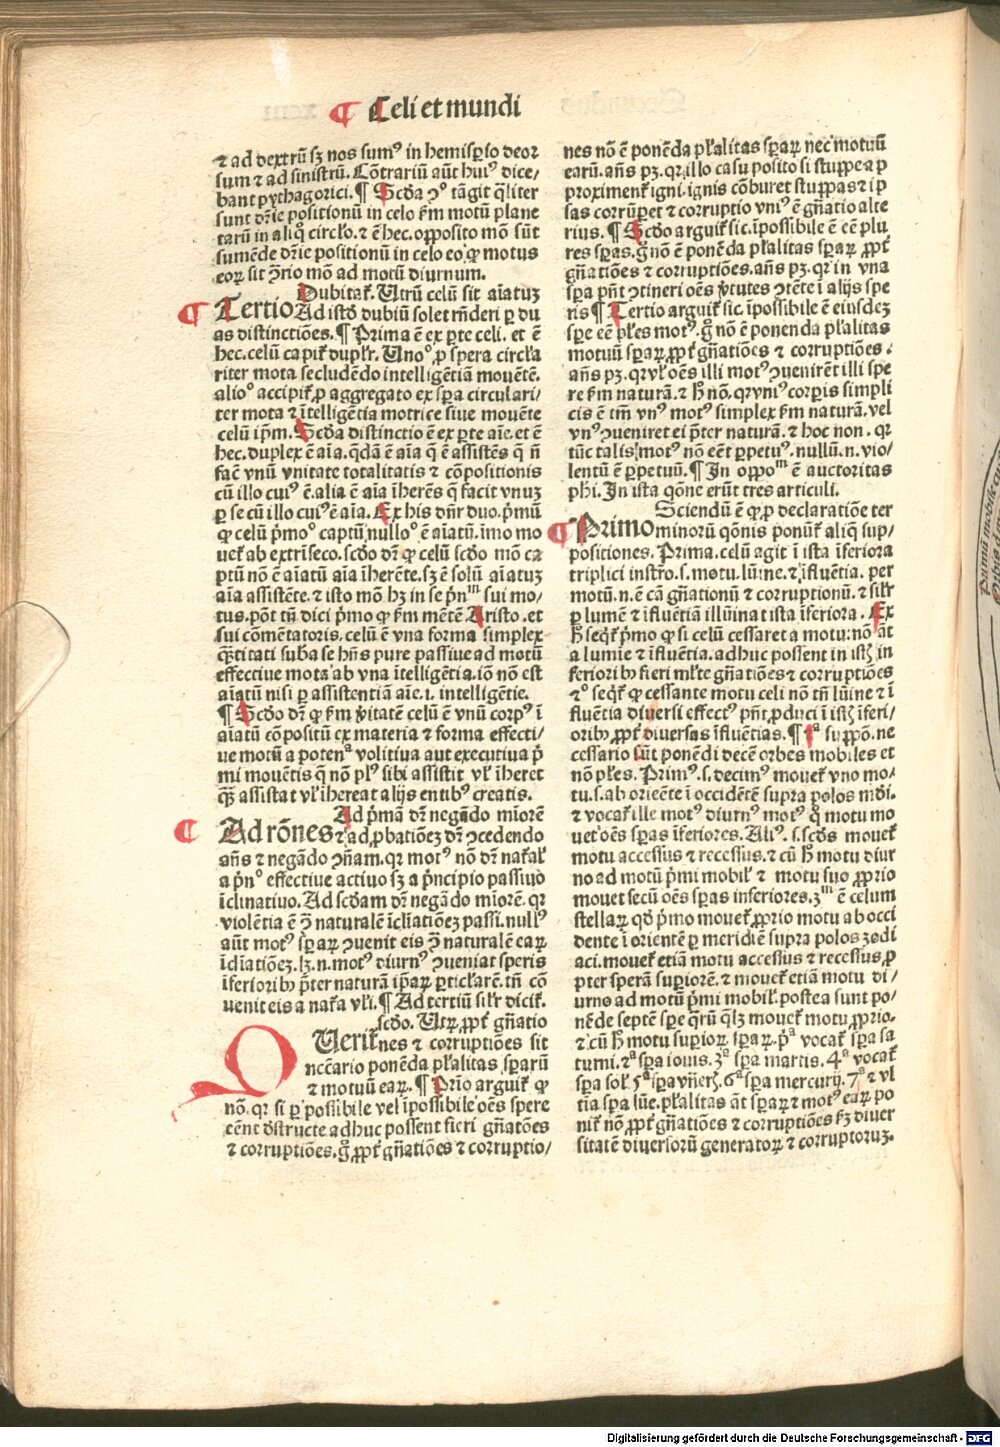 ¶ Celi et mundi
⁊ ad dextrũ sʒ nos sumꝰ in hemispꝫio deor
sum ⁊ ad sinistrũ. Cõtrariũ aũt huiꝰ dice/
bant pythagorici. ¶ Scđa ꝯº tãgit qͥliter
sunt dr̃ie positionũ in celo ẜm motũ plane
tarũ in aliqͦ circl̃o. ⁊ ẽ hec. oꝓposito mõ sũt
sumẽde dr̃ie positionũ in celo eo ꝙ motus
eoꝝ sit ꝯ̃rio mõ ad motũ diurnum.
Dubitat̃. Utrũ celũ sit aĩatuʒ
¶ Tertio Ad istđ dubiũ solet rñderi ꝑ du
as distinctiões. ¶ Prima ẽ ex ꝑte celi. et ẽ
hec. celũ capit̃ dupl̃r. Unoº ꝓ spera circl̃a
riter mota secludẽdo intelligẽtiã mouẽtẽ.
alioº accipit̃ ꝓ aggregato ex sꝑa circulari/
ter mota ⁊ ĩtelligẽtia motrice siue mouẽte
celũ ip̃m. Scđa distinctio ẽ ex ꝑte aĩe. et ẽ
hec. duplex ẽ aĩa. qđã ẽ aĩa q̃ ẽ assistẽs q̃ ñ
facͭ vnũ vnitate totalitatis ⁊ cõpositionis
cũ illo cuiꝰ ẽ. alia ẽ aĩa ĩherẽs q̃ facit vnuʒ
ꝑ se cũ illo cuiꝰ ẽ aĩa. Ex his dñr duo. pͥmũ
ꝙ celũ pͥmoº captũ nulloº ẽ aĩatũ. ĩmo mo
uet̃ ab extrĩseco. scđo dr̃ ꝙ celũ scđo mõ ca
ptũ nõ ẽ aĩatũ aĩa ĩherẽte. sʒ ẽ solũ aĩatuʒ
aĩa assistẽte. ⁊ isto mõ hʒ in se pͥnᵐ sui mo/
tus. põt tñ dici pͥmo ꝙ ẜm mẽtẽ Aristo. et
sui cõmẽtatoris. celũ ẽ vna forma simplex
qͣ̃titati sub̃a se hñs pure passiue ad motũ
effectiue mota ab vna ĩtelligẽtia. iõ nõ est
aĩatũ nisi ꝑ assistentiã aĩe. i. intelligẽtie.
¶ Scđo dr̃ ꝙ ẜm v̾itatẽ celũ ẽ vnũ corpꝰ ĩ
aĩatũ cõpositũ ex materia ⁊ forma effecti/
ue motũ a potenᵃ volitiua aut executiua pͥ
mi mouẽtis q̃ nõ plꝰ sibi assistit vl̃ ĩheret
qͣ̃ assistat vl̃ ĩhereat alijs entibꝰ creatis.
Ad pͥmã dr̃ negãdo miorẽ
¶ Ad rõnes ⁊ ad ꝓbatiõeʒ dr̃ ꝯcedendo
añs ⁊ negãdo ꝯñam. qꝛ motꝰ nõ dr̃ nat̃al̃
a pͥnº effectiue actiuo sʒ a pͥncipio passiuo
ĩclinatiuo. Ad scđam dr̃ negãdo miorẽ. qꝛ
violẽtia ẽ ꝯ̃ naturalẽ ĩcl̃iatiõeʒ passi. nullꝰ
aũt motꝰ sꝑaꝝ ꝯuenit eis ꝯ̃ naturalẽ eaꝝ
ĩcl̃iatiõeʒ. lʒ. n. motꝰ diurnꝰ ꝯueniat speris
ĩferioribꝫ p̃ter naturã ip̃aꝝ ꝑticl̃arẽ. tñ cõ
uenit eis a nat̃a vl̃i. ¶ Ad tertiũ sil̃r dicit̃.
scđo. Utꝝ ꝓpt̃ gñatio
QUerit̃ nes ⁊ corruptiões sit
ncc̃ario ponẽda pl̃alitas sꝑarũ
⁊ motuũ eaꝝ. ¶ Prĩo arguit̃ ꝙ
nõ. qꝛ si ꝑ possibile vel ĩpossibile oẽs spere
eẽnt đstructe adhuc possent fieri gñatões
⁊ corruptiões. gͦ ꝓpt̃ gñatiões ⁊ corruptio/
nes nõ ẽ ponẽda pl̃alitas sꝑaꝝ nec motuũ
earũ. añs pʒ. qꝛ illo casu posito si stuppe a ꝓ
proximent̃ igni. ignis cõburet stuppas ⁊ ip
sas corrũpet ⁊ corruptio vniꝰ ẽ gñatio alte
rius. ¶ Scđo arguit̃ sic. ĩpossibile ẽ eẽ plu
res sꝑas. gͦ nõ ẽ ponẽda pl̃alitas sꝑaꝝ ꝓpt̃
gñatiões ⁊ corruptiões. añs pʒ. qꝛ in vna
sꝑa pñt ꝯtineri oẽs v̾tutes ꝯtẽte ĩ alijs spe
ris ¶ Tertio arguit̃ sic. ĩpossibile ẽ eiusdeʒ
spe eẽ pl̃es motꝰ. gͦ nõ ẽ ponenda pl̃alitas
motuũ sꝑaꝝ ꝓpt̃ gñatiões ⁊ corruptiões.
añs pʒ. qꝛ vl̃ oẽs illi motꝰ ꝯuenirẽt illi spe
re ẜm naturã. ⁊ h̃ nõ. qꝛ vniꝰ corꝑis simpli
cis ẽ tm̃ vnꝰ motꝰ simplex ẜm naturã. vel
vnꝰ ꝯueniret ei p̃ter naturã. ⁊ hoc non. qꝛ
tũc talis motꝰ nõ eẽt ꝑpetuꝰ. nullũ. n. vio/
lentũ ẽ ꝑpetuũ. ¶ In oppoᵐ ẽ auctoritas
phi. In ista qõne erũt tres articuli.
Sciendũ ẽ ꝙ ꝓ declaratiõe ter
¶ Primo minorũ qõnis ponũt̃ aliq̃ sup/
positiones. Prima. celũ agit ĩ ista ĩferiora
triplici instr̃o. s. motu. lũine. ⁊ ĩfluẽtia. per
motũ. n. ẽ cã gñationũ ⁊ corruptionũ. ⁊ sil̃r
ꝑ lumẽ ⁊ ĩfluẽtiã illũinat ista ĩferiora. Ex
h̃ seqt̃ pͥmo ꝙ si celũ cessaret a motu: nõ aũt
a lumĩe ⁊ ĩfluẽtia. adhuc possent in istʒ in
ferioribꝫ fieri ml̃te gñatiões ⁊ corruptiões
⁊º seqt̃ ꝙ cessante motu celi nõ tñ lũine ⁊ ĩ
fluẽtia diuersi effectꝰ pñt ꝓduci ĩ istʒ ĩferi/
oribꝫ ꝓpt̃ diuersas ĩfluẽtias. ¶ ⁊ᵃ suppõ. ne
cessario sũt ponẽdi decẽ orbes mobiles et
nõ pl̃es. Primꝰ. s. decimꝰ mouet̃ vno mo/
tu. s. ab oriẽte ĩ occidẽte supra polos mũdi.
⁊ vocat̃ ille motꝰ diurnꝰ motꝰ q̊ motu mo
uet oẽs sꝑas ĩferiores. Aliꝰ. s. scđs mouet̃
motu accessus ⁊ recessus. ⁊ cũ h̃ motu diur
no ad motũ pͥmi mobil̃ ⁊ motu suo ꝓprio
mouet secũ oẽs sꝑas inferiores. 3ᵐ ẽ celum
stellaꝝ qđ pͥmo mouet̃ ꝓprio motu ab occi
dente ĩ orientẽ ꝑ meridiẽ supra polos zodi
aci. mouet̃ etiã motu accessus ⁊ recessus ꝓ
pter sperã supiorẽ. ⁊ mouet̃ etiã motu di/
urno ad motũ pͥmi mobil̃. postea sunt po/
nẽde septẽ spe qͣrũ qͥlʒ mouet̃ motu ꝓprio.
⁊ cũ h̃ motu supioꝝ sꝑaꝝ. pͣ vocat̃ sꝑa sa
turni. ⁊ᵃ sꝑa iouis. 3ᵃ sꝑa martis. 4ᵃ vocat̃
sꝑa sol̃. 5ᵃ sꝑa vñerʒ. 6ᵃ sꝑa mercurij. 7ᵃ ⁊ vl
tĩa sꝑa lũe. pl̃alitas aũt sꝑaꝝ ⁊ motꝰ eaꝝ po
nit̃ nõ ꝓpt̃ gñatiões ⁊ corruptiões sʒ diuer
sitatẽ diuersorũ generatoꝝ ⁊ corruptoruʒ.
Primũ mobile
Digitalisierung gefördert durch die Deutsche Forschungsgemeinschaft - DFG